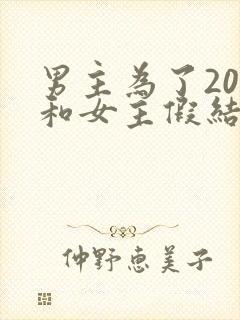 男主為了20
和女主假結
仲野惠美子